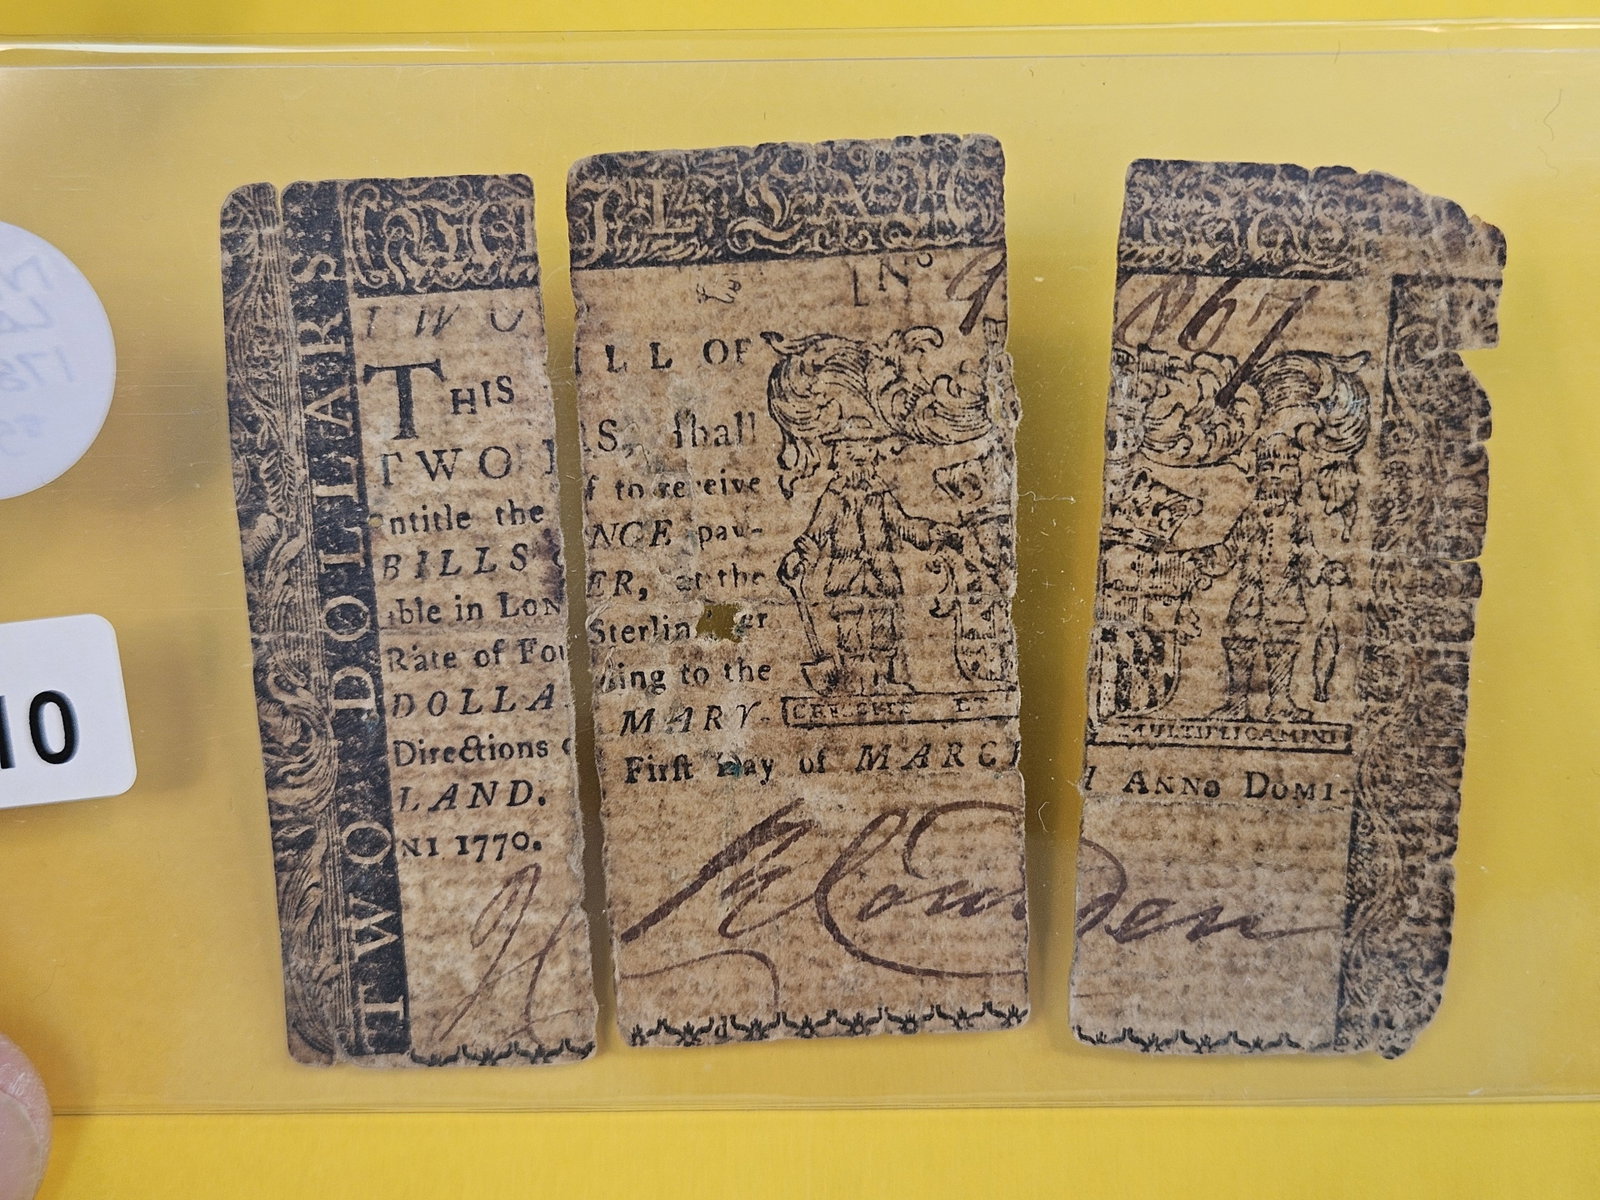 TWO DOLLARS
TWO N° 9867
THIS ILL OF
TWO RS, ſhall
entitle the f to receive
BILLS NGE pay-
able in LON ER, at the
Rate of Fou Sterlin er
DOLLA ding to the
Directions MARY-
LAND. Firſt Day of MARCH ANNO DOMI-
NI 1770.
CRESCITE ET MULTIPLICAMINI
Couden
10